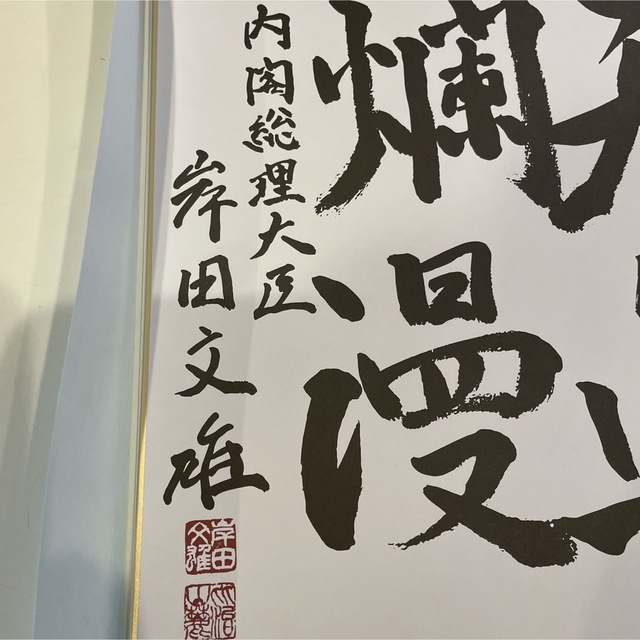 爛漫
内閣総理大臣
岸田文雄
岸田
文雄